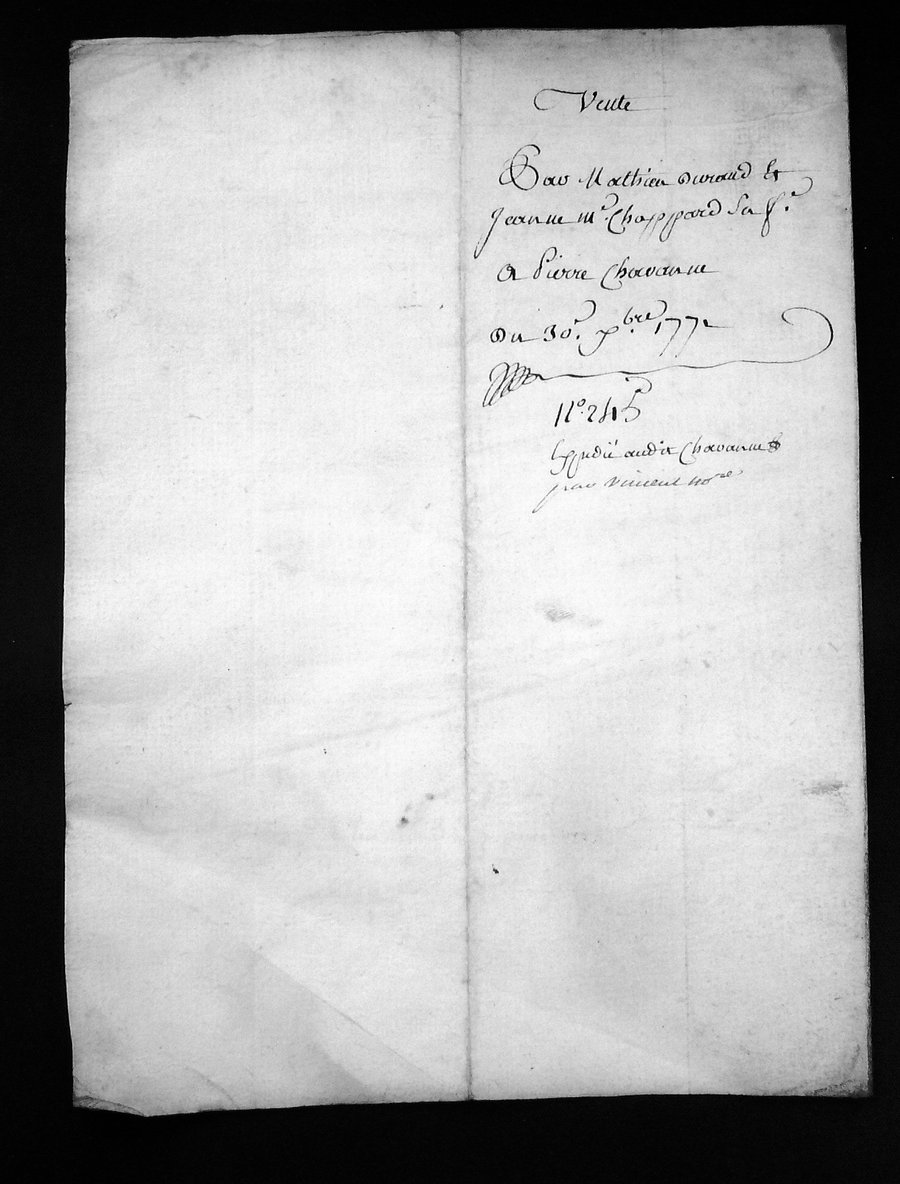 Vente
Par Mathieu Durand Et
Jeanne m.e Chappard Sa f.e
A Pierre Chavanne
Du 30.e bre 1772
N.o 245
Expedié audit Chavanne
par Vincent no.re